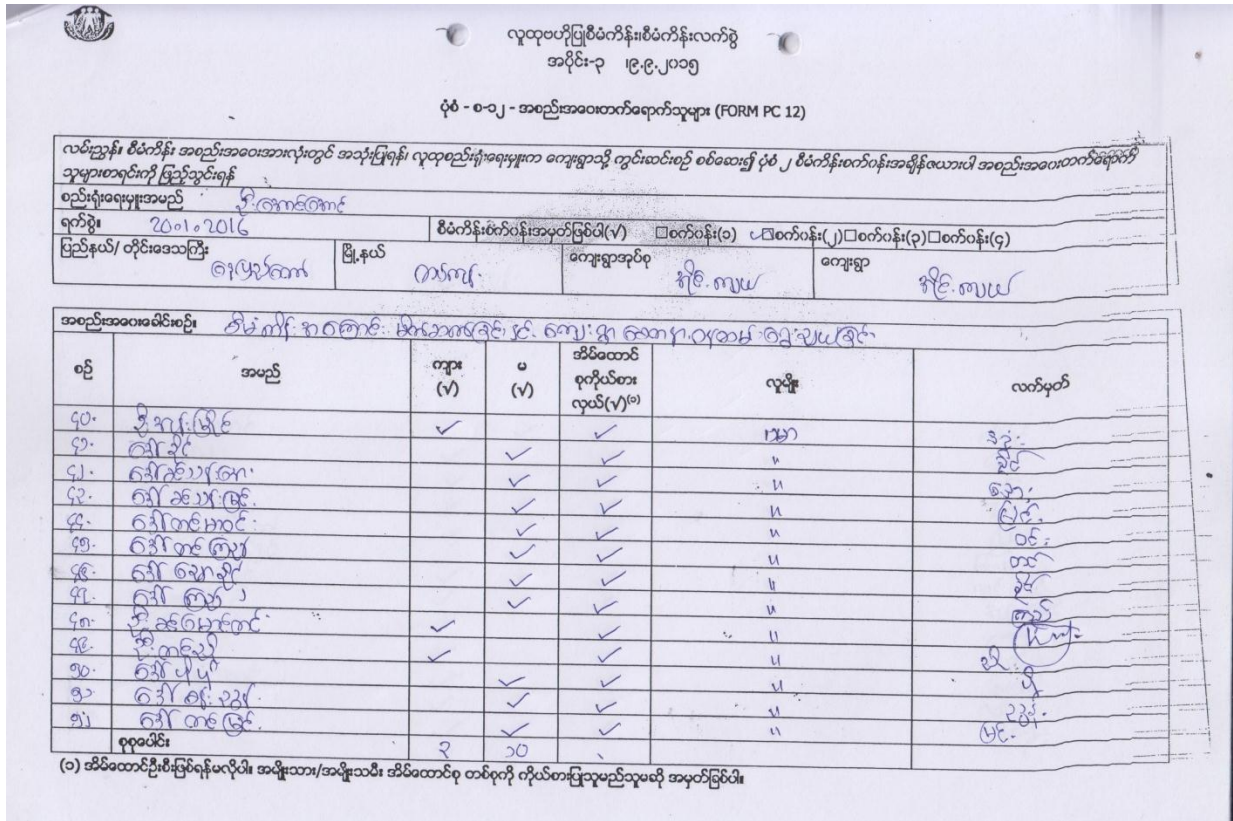 လူထုဗဟိုပြုစီမံကိန်း၊စီမံကိန်းလက်စွဲ
အပိုင်း-၃ ၊၉.၉.၂၀၁၅
ပုံစံ - စ-၁၂ - အစည်းအဝေးတက်ရောက်သူများ (FORM PC 12)
လမ်းညွှန်။ စီမံကိန်း အစည်းအဝေးအားလုံးတွင် အသုံးပြုရန်၊ လူထုစည်းရုံးရေးမှူးက ကျေးရွာသို့ ကွင်းဆင်းစဉ် စစ်ဆေး၍ ပုံစံ ၂ စီမံကိန်းစက်ဝန်းအချိန်ဇယားပါ အစည်းအဝေးတက်ရောက်
သူများစာရင်းကို ဖြည့်သွင်းရန်
စည်းရုံးရေးမှူးအမည် ဦးအောင်အောင်
ရက်စွဲ။ 20.1.2016 စီမံကိန်းစက်ဝန်းအမှတ်ဖြစ်ပါ(√) □စက်ဝန်း(၁) ✓□စက်ဝန်း(၂)□စက်ဝန်း(၃)□စက်ဝန်း(၄)
ပြည်နယ်/ တိုင်းဒေသကြီး နေပြည်တော် မြို့နယ် ကျေးရွာအုပ်စု ကျေးရွာ
အစည်းအဝေးခေါင်းစဉ်။ စီမံကိန်းအကြောင်း မိတ်ဆက်ခြင်းနှင့် ကျေးရွာစေတနာ့ဝန်ထမ်းရွေးချယ်ခြင်း
စဉ် အမည် ကျား (√) မ (√) အိမ်ထောင်စုကိုယ်စားလှယ်(√)⁽¹⁾ လူမျိုး လက်မှတ်
၄၀. ✓ ✓ ဗမာ
၄၁. ဒေါ်ခိုင် ✓ ✓ " ခိုင်
၄၂. ✓ ✓ "
၄၃. ✓ ✓ " မြင့်
၄၄. ဒေါ်တင်မာဝင်း ✓ ✓ " ဝင်း
၄၅. ဒေါ်တင်ကြည် ✓ ✓ " တင်
၄၆. ✓ ✓ " ခိုင်
၄၇. ဒေါ်ကြည် ✓ ✓ " ကြည်
၄၈. ✓ ✓ "
၄၉. ဦးတင်ညို ✓ ✓ " ညို
၅၀. ဒေါ်ပိုပို ✓ ✓ " ပို
၅၁. ✓ ✓ "
၅၂. ဒေါ်တင်မြင့် ✓ ✓ " မြင့်
စုစုပေါင်း ၃ ၁၀
(၁) အိမ်ထောင်ဦးစီးဖြစ်ရန်မလိုပါ။ အမျိုးသား/အမျိုးသမီး အိမ်ထောင်စု တစ်စုကို ကိုယ်စားပြုသူမည်သူမဆို အမှတ်ခြစ်ပါ။